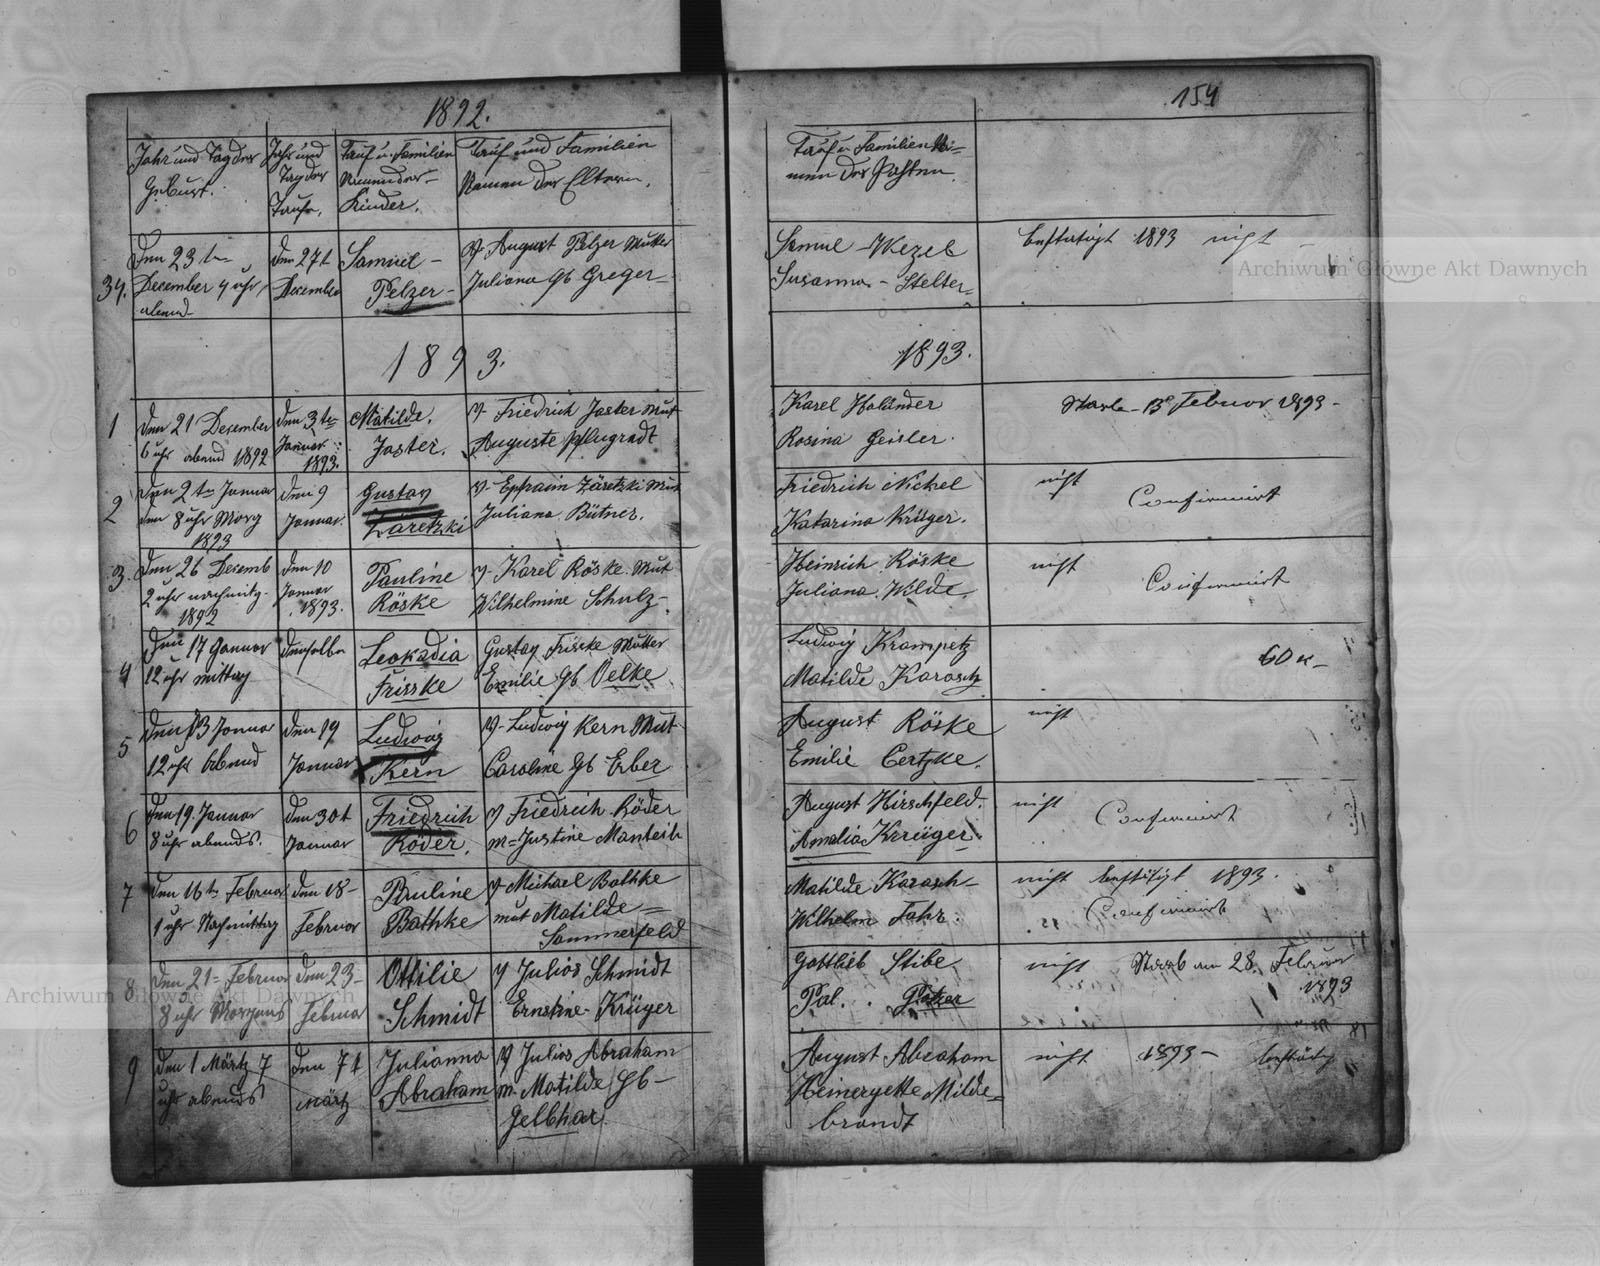 1892.
154
Jahr und Tag der
Geburt.
Jahr und
Tag der
Taufe.
Tauf u. Familien
Namen der
Kinder.
Tauf und Familien
Namen der Eltern.
Tauf u. Familien Na=
men der Pathen
34.
Den 23 ten
December 4 uhr
abend
den 27t
December
Samuel
Pelzer
V. August Pelzer Mutter
Juliana gb Greger
Samuel Wezel
Susanna Stelter
bestätigt 1893 nicht
Archiwum Główne Akt Dawnych
1893.
1893.
1
den 21 December
6 uhr abend 1892
den 3 ten
Januar
1893.
Matilde.
Jaster.
V. Friedrich Jaster Mut
Auguste Pflugradt
Karel Holänder
Rosina Geisler.
Starb 13 Februar 1893
2
den 2 ten Januar
8 uhr Morg
1893
den 9
Januar.
Gustav
Zäretzki
V. Ephraim Zäretzki Mut
Juliana Bütner.
Friedrich Nickel
Katarina Krüger.
nicht
Confirmirt
3.
den 26 Decemb
2 uhr nachmitg.
1892
den 10
Januar
1893.
Pauline
Röske
V. Karel Röske. Mut
Wilhelmine Schulz
Heinrich Röske
Juliana Wilde
nicht
Confirmirt
4
Den 17 Januar
12 uhr mittag
denselben
Leokadia
Frisske
Gustav Friske Mutter
Emilie gb Oelke
Ludwig Krampetz
Matilde Karasch
60 K
5
den 13 Januar
12 uhr Abend
den 19
Januar
Ludwig
Kern
V. Ludwig Kern Mut
Caroline gb Erber
August Röske
Emilie
nicht
6
den 19. Januar
8 uhr abends.
den 30t
Januar
Friedrich
Röder.
V Friedrich Röder
m= Justine Manteih
August Hirschfeld.
Amalia Krüger.
nicht
Confirmirt
7
den 16 ten Februar
1 uhr Nachmittag
den 18
Februar
Pauline
Bathke
V. Michael Bathke
mut Matilde
Sommerfeld
Matilde Karasch
Wilhelm Fahr.
nicht bestätigt 1893.
Confirmirt
8
den 21 Februar
8 uhr Morgens
den 23
Februar
Ottilie
Schmidt
V Julios Schmidt
Ernstine Krüger
Gottlieb Stibe
Pal.
nicht Starb am 28. Februar
1893
Archiwum Główne Akt Dawnych
9
den 1 Märtz 7
uhr abends
den 7t
Märtz
Julianna
Abraham
V Julios Abraham
m. Matilde gb
Gelbhar
August Abraham
Heineryette Milde=
brandt
nicht 1893 bestätig